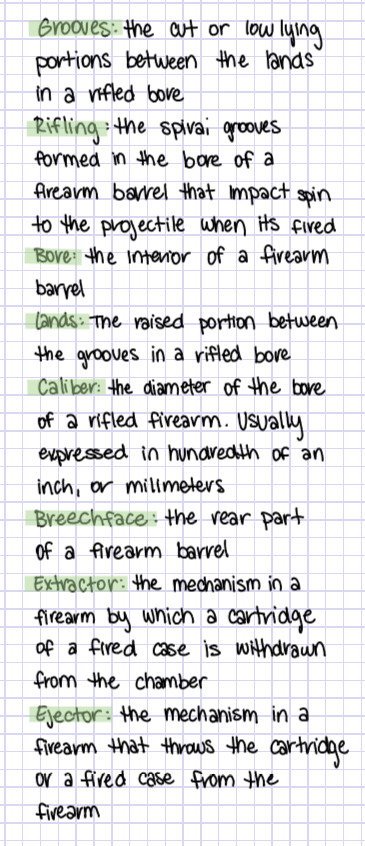 Grooves: the cut or low lying
portions between the lands
in a rifled bore
Rifling: the spiral grooves
formed in the bore of a
firearm barrel that impact spin
to the projectile when its fired
Bore: the interior of a firearm
barrel
Lands: The raised portion between
the grooves in a rifled bore
Caliber: the diameter of the bore
of a rifled firearm. Usually
expressed in hundredth of an
inch, or millmeters
Breechface: the rear part
of a firearm barrel
Extractor: the mechanism in a
firearm by which a cartridge
of a fired case is withdrawn
from the chamber
Ejector: the mechanism in a
firearm that throws the cartridge
or a fired case from the
firearm